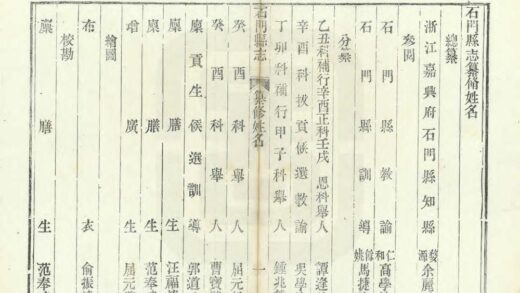 石門縣志纂脩姓名
總纂
浙江嘉興府石門縣知縣 婺源 余麗
參閱
石門縣教諭 仁和 高學
石門縣訓導 餘姚 馬捷
分纂
乙丑科補行辛酉正科壬戌 恩科舉人 譚逢
辛酉科拔貢候選教諭 吳學
丁卯科補行甲子科舉人 鍾兆
石門縣志 纂修姓名 一
癸酉科舉人 屈元
癸酉科舉人 曹寶
廩貢生候選訓導 郭道
廩膳生 汪福
廩膳生 范奉
增廣生 屈元
繪圖
布衣 俞振
校勘
廩膳生 范奉